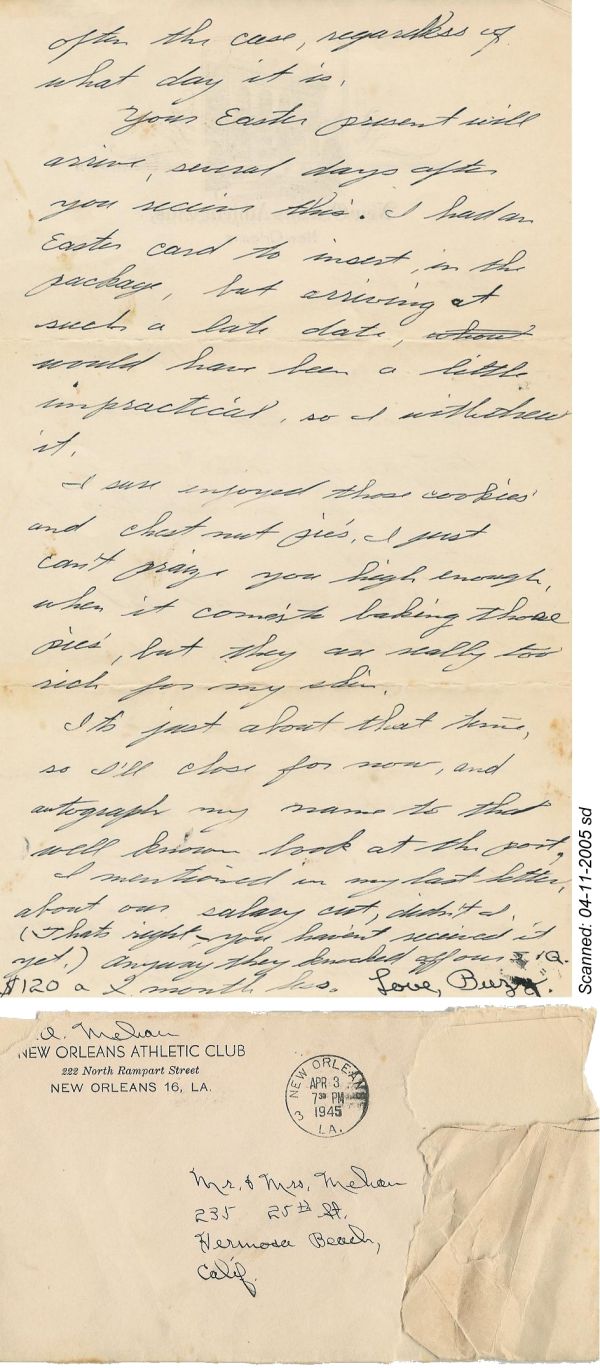 often the case, regardless of
what day it is.
Your Easter present will
arrive, several days after
you receive this. I had an
Easter card to insert, in the
package, but arriving at
such a late date,
would have been a little
impractical, so I withdrew
it.
I sure enjoyed those cookies
and chestnut pies, I just
can't praize you high enough,
when it comes to baking those
pies, but they are really too
rich for my skin.
It's just about that time,
so I'll close for now, and
autograph my name to that
well known book at the post,
I mentioned in my last letter,
about our salary cut, didn't I.
(Thats right - you haven't received it
yet.) Anyway they knocked off our
$120 a month Love, Buzz.
Scanned: 04-11-2005 sd
Mehan
NEW ORLEANS ATHLETIC CLUB
222 North Rampart Street
NEW ORLEANS 16, LA.
NEW ORLEANS
APR 3
7 30 PM
1945
3
LA.
Mr. & Mrs. Mehan
235 25th St.
Hermosa Beach,
Calif.